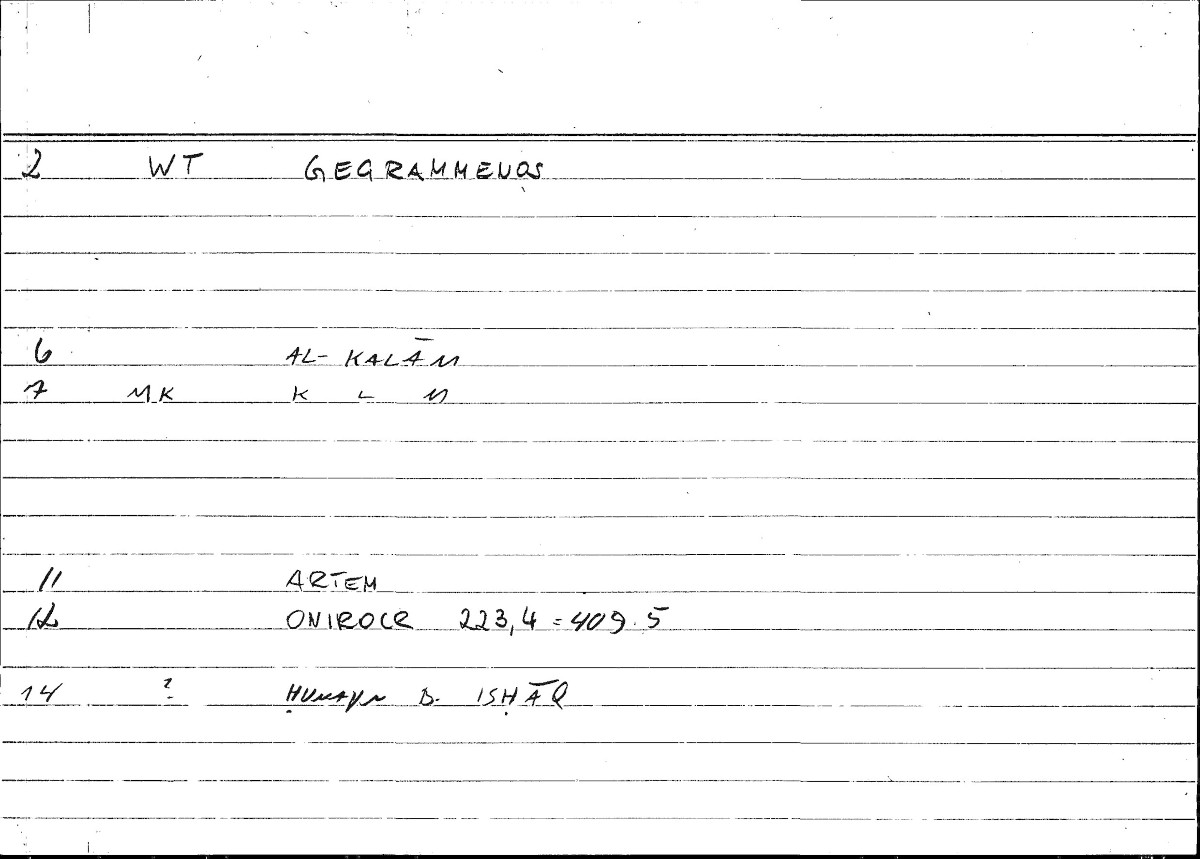 2 WT GEGRAMMENOS
6 AL-KALĀM
7 MK K L M
11 ARTEM
12 ONIROCR 223,4 = 409.5
14 ? ḤUNAYN B. ISḤĀQ